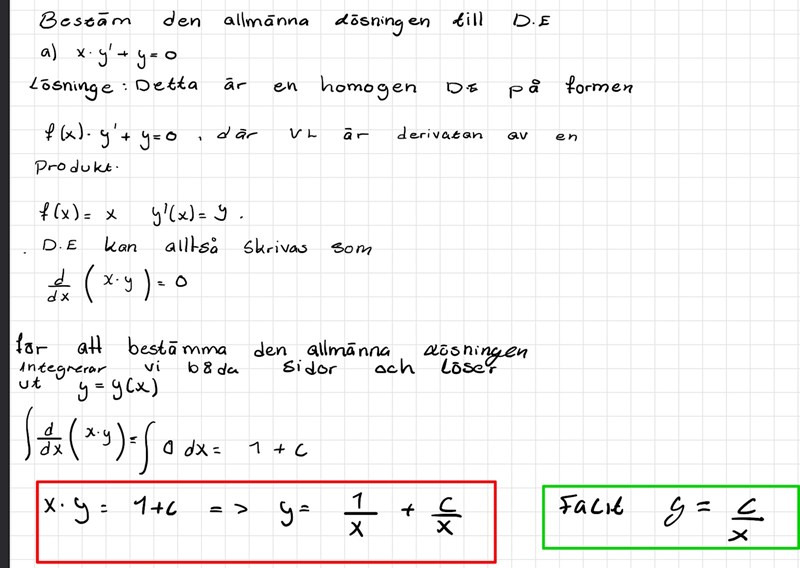 Bestäm den allmänna Lösningen till D.E
a) x · y' + y = 0
Lösninge : Detta är en homogen DE på formen
f(x) · y' + y = 0 , där VL är derivatan av en
Produkt.
f(x) = x y'(x) = y .
. D.E kan alltså skrivas som
d/dx ( x · y ) = 0
för att bestämma den allmänna Lösningen
integrerar vi båda sidor och Löser
ut y = y(x)
∫ d/dx ( x · y ) = ∫ 0 dx = 1 + C
x · y = 1 + C => y = 1/x + C/x
Facit y = C/x